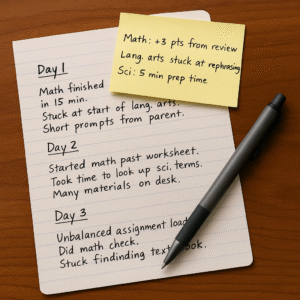 Math: +3 pts from review
Lang. arts stuck at rephrasing
Sci: 5 min prep time
Day 1
Math finished
in 15 min.
Stuck at start of lang. arts.
Short prompts from parent.
Day 2
Started math past worksheet.
Took time to look up sci. terms.
Many materials on desk.
Day 3
Unbalanced assignment load
Did math check.
Stuck findinding